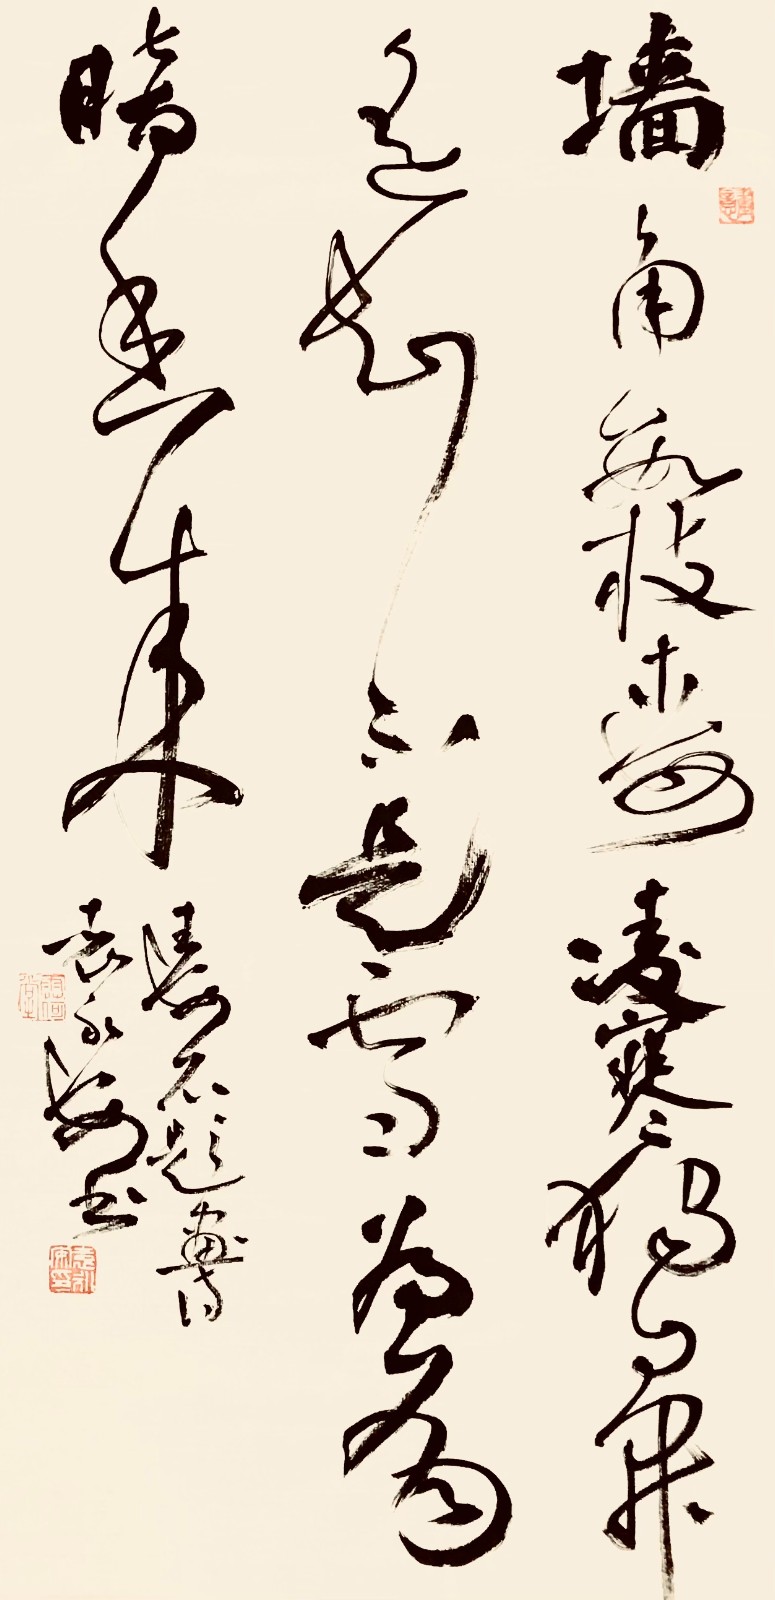 墙角数枝梅凌寒独自开
遥知不是雪为有
暗香来
王安石题画诗
袁永安书